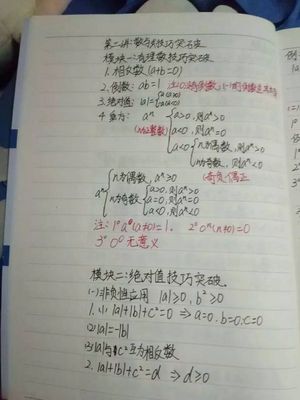 第二讲:数与式技巧突破
模块一:有理数技巧突破
1.相反数(a+b=0)
2.倒数: ab=1
3.绝对值: |a|={a(a≥0) -a(a<0)
4.乘方: aⁿ {a>0,则aⁿ>0
(n为正整数) a=0,则aⁿ=0
a<0{n为偶数,则aⁿ>0
n为奇数,则aⁿ<0
奇负偶正
aⁿ{n为偶数,aⁿ≥0
n为奇数{a>0,则aⁿ>0
a=0,则aⁿ=0
a<0,则aⁿ<0
注:1° a⁰(a≠0)=1. 2° 0ⁿ(n≠0)=0
3° 0⁰无意义
模块二:绝对值技巧突破
(一)非负性应用 |a|≥0, b²≥0
1.(1) |a|+|b|+c²=0 ⇒a=0.b=0.c=0
(2)|a|=-|b|
(3)|a|与c²互为相反数
2. |a|+|b|+c²=d ⇒d≥0